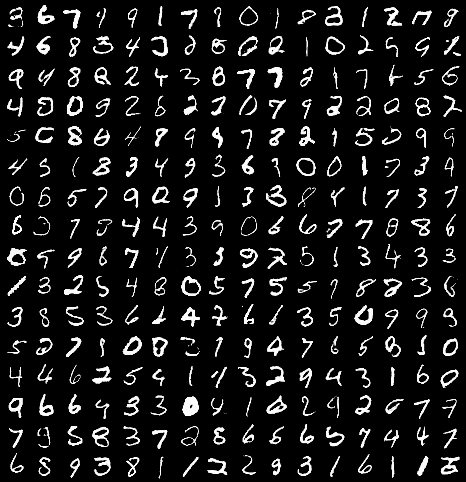 3 6 7 4 9 1 7 9 0 1 8 3 1 2 7 8
4 6 8 3 4 2 8 0 2 1 0 2 9 9 2
9 4 8 2 2 4 3 8 7 7 2 1 7 6 5 6
4 0 0 9 2 6 2 7 0 7 9 2 2 0 8 7
5 0 8 6 4 8 9 9 7 8 2 1 5 0 9 9
4 5 1 8 3 4 9 3 6 3 0 0 1 7 3 9
0 6 5 7 9 0 9 1 3 3 8 4 1 7 3 7
6 0 7 8 4 4 3 9 0 6 6 7 7 8 8 6
0 9 9 6 7 4 3 8 9 2 5 1 3 4 3 3
1 3 2 5 4 8 0 5 7 5 5 9 8 8 3 6
3 8 5 3 6 1 4 7 6 1 3 5 0 9 9 3
5 2 7 1 0 8 3 7 9 4 7 6 5 8 1 0
4 4 6 2 5 4 1 4 3 2 9 4 3 1 6 0
9 6 6 4 3 3 0 9 1 8 2 9 2 0 7 7
7 9 5 8 3 7 2 8 6 5 6 5 7 4 4 7
6 8 9 3 8 1 1 2 2 9 3 1 6 1 1 5